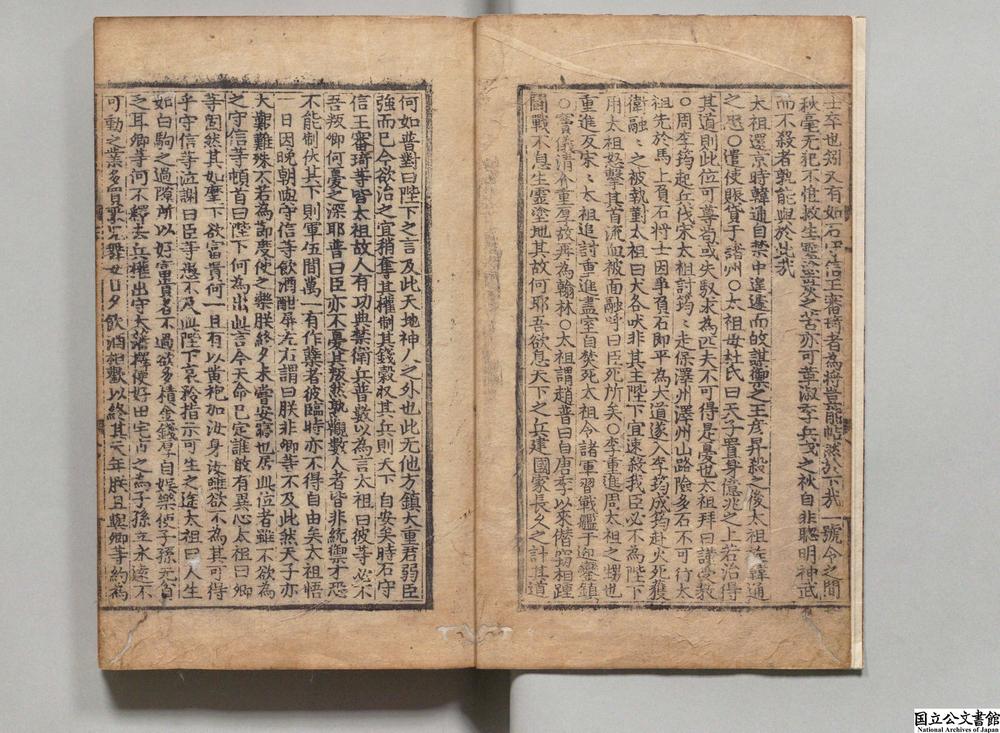 秋毫無犯不惟救生聖
而不殺者孰能與於此哉
太祖還京時韓通自禁中遑遽而
之王彥昇殺之後太祖
之○遣使賑貸于諸州○太祖母杜氏曰天子置身億兆之上若治得
其道則此位可尊苟或失馭求為匹夫不可得是憂也太祖拜曰謹受教
○周李筠起兵伐宋太祖討筠〻走保澤州澤州山路險多石不可行太
祖先於馬上負石將士因爭負石即平為大道遂入李筠成筠赴火死獲
衛融〻之被執對太祖曰犬各吠非其主陛下宜速殺我臣必不為陛下
用太祖怒擊其首流血被面融呼曰臣死所矣○李重進周太祖之甥也
重進反宋〻太祖追討重進盡室自焚死太祖令諸軍習戰艦于迎鑾鎮
○竇儀清介重厚故再為翰林○太祖謂趙普曰自唐季以來僭竊相踵
鬪戰不息生靈塗地其故何耶吾欲息天下之兵建國家長久之計其道
何如普對曰陛下之言及此天地神人之外也此無他方鎮大重君弱臣
強而已今欲治之宜稍奪其權制其錢穀収其兵則天下自安矣時石守
信王審琦等皆太祖故人有功典禁衛兵普數以為言太祖曰彼等必不
吾叛卿何憂之深耶普曰臣亦不憂其叛然熟觀數人者皆非統御才恐
不能制伏其下則軍伍間萬一有作孽者彼臨時亦不得自由矣太祖悟
一日因晚朝與守信等飲酒酣屏左右謂曰朕非卿等不及此然天子亦
大艱難殊不若為節度使之樂朕終夕未嘗安寢也居此位者誰不欲為
之守信等頓首曰陛下何為出此言今天命已定誰敢有異心太祖曰卿
等固然其如麾下欲富貴何一旦有以黃袍加汝身汝雖欲不為其可得
乎守信等泣謝曰臣等愚不及此陛下哀矜指示可生之途太祖曰人生
如白駒之過隙所以好富貴者不過欲多積金錢厚自娛樂使子孫无貧
之耳卿等何不釋去兵權出守大藩擇便好田宅市之為子孫立永遠不
可動之業多買 日夕飲酒相歡以終其天年朕且與卿等約為
国立公文書館
National Archives of Japan